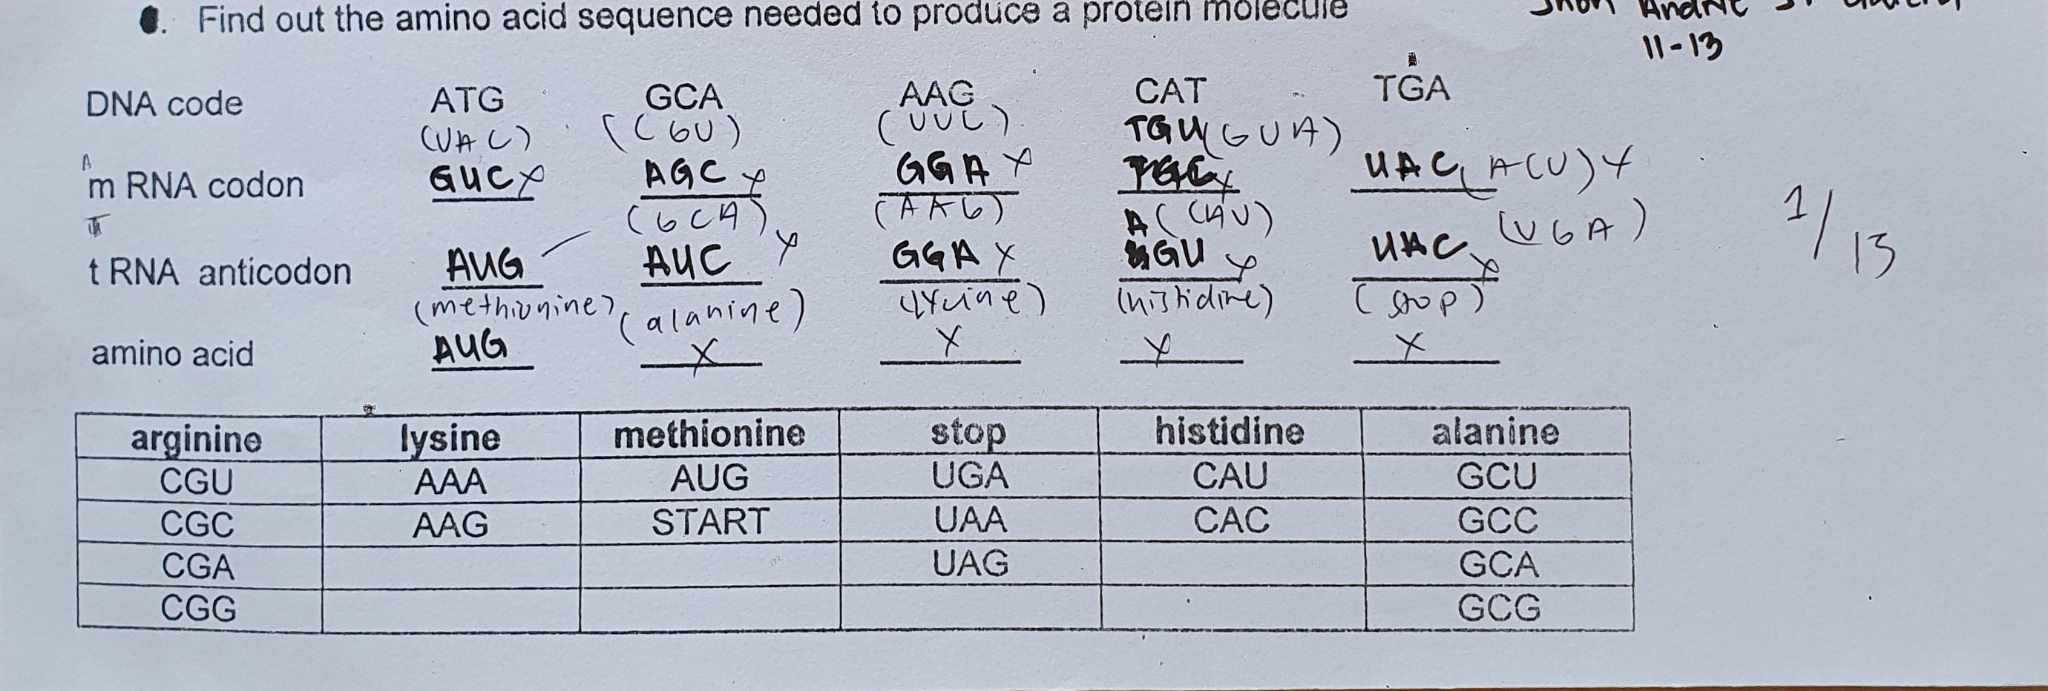 . Find out the amino acid sequence needed to produce a protein molecule
11-13
DNA code ATG GCA AAG CAT TGA
(UAC) (CGU) (UUC) TGU (GUA)
A
m RNA codon GUC x AGC x GGA x x UAC (ACU) x
(GCA) (AAG) (CAU) (UGA)
1/13
t RNA anticodon AUG AUC x GGA x GU x UAC x
(methionine) (alanine) (lycine) (histidine) (stop)
amino acid AUG x x x x
arginine lysine methionine stop histidine alanine
CGU AAA AUG UGA CAU GCU
CGC AAG START UAA CAC GCC
CGA UAG GCA
CGG GCG